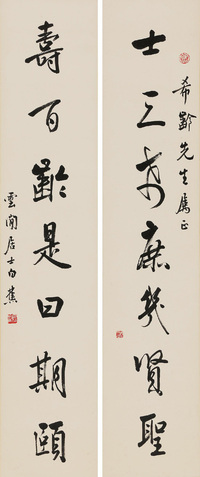 希齡先生屬正
士三有庶幾賢聖
壽百齡是曰期頤
雲間居士白蕉